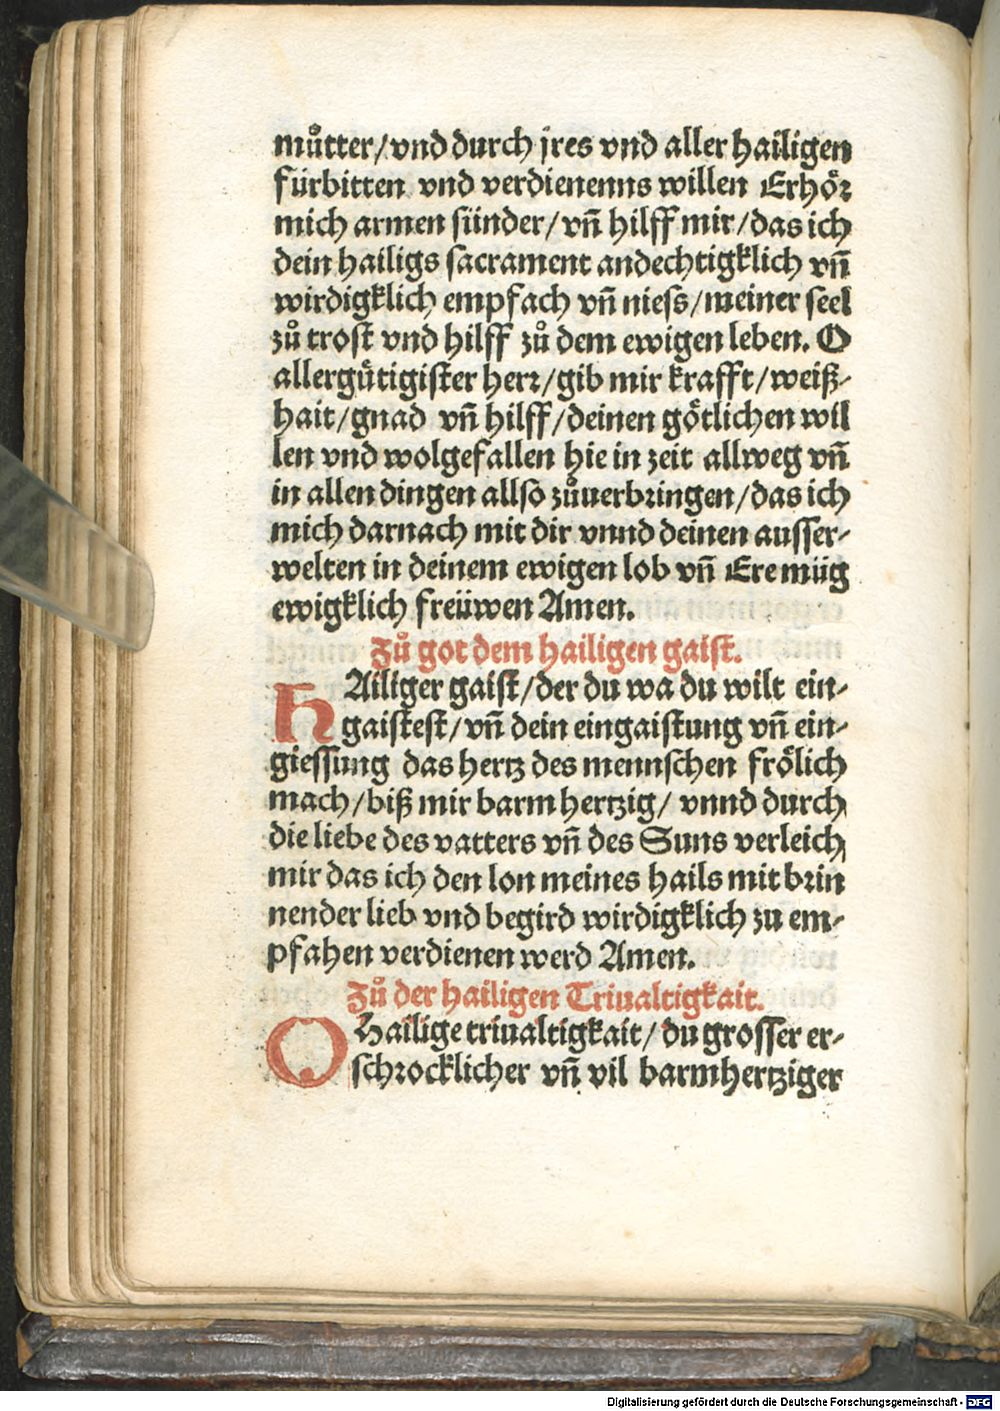 můtter/vnd durch jres vnd aller hailigen
fürbitten vnd verdienenns willen Erhöꝛ
mich armen sünder/vñ hilff mir/das ich
dein hailigs sacrament andechtigklich vñ
wirdigklich empfach vñ niess/meiner seel
zů trost vnd hilff zů dem ewigen leben. O
allergütigister herꝛ/gib mir krafft/weiß-
hait/gnad vñ hilff/deinen götlichen wil
len vnd wolgefallen hie in zeit allweg vñ
in allen dingen allso zůuerbꝛingen/das ich
mich darnach mit dir vnnd deinen ausser-
welten in deinem ewigen lob vñ Ere müg
ewigklich freüwen Amen.
Zů got dem hailigen gaist.
HAiliger gaist/der du wa du wilt ein-
gaistest/vñ dein eingaistung vñ ein-
giessung das hertz des mennschen frölich
mach/biß mir barmhertzig/ vnnd durch
die liebe des vatters vñ des Suns verleich
mir das ich den lon meines hails mit bꝛin
nender lieb vnd begird wirdigklich zu em-
pfahen verdienen werd Amen.
Zů der hailigen Triualtigkait.
O Hailige triualtigkait/du grosser er-
schꝛocklicher vñ vil barmhertziger
Digitalisierung gefördert durch die Deutsche Forschungsgemeinschaft - DFG